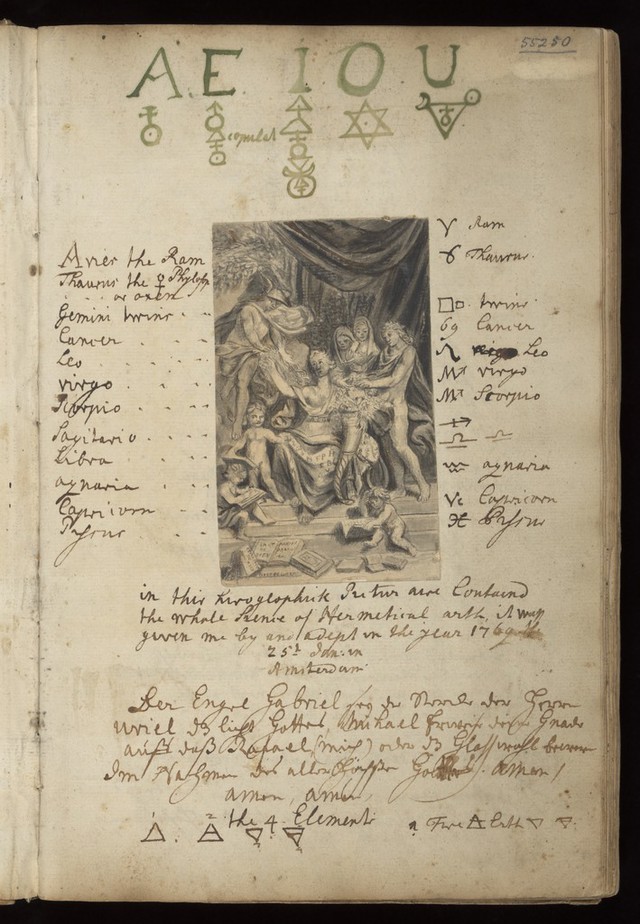 55250
A. E. I O U
copulat
Aries the Ram
Thaurus the ♀ Phylosp
or oxen
Gemini twins
Cancer
Leo
virgo
Scorpio
Sagitario
Libra
aqnaria
Capricorn
♈ Ram
♉ Thaurus
twins
69 Cancer
♌ Leo
♍ virgo
♏ Scorpio
♐
♎
♒ aqnaria
Capricorn
♓
in this hiroglophick Pictur are Containd
the whole Sience of Hermetical arth, it was
given me by an adept in the year 1769
25th Jan: in
Amsterdam
Der Engel Gabriel sey die der Herr
uriel dz licht Gottes, Michael diese Gnade
auff daß Rafael (mich) oder dz
Im Nahmen des allerhöchsten Gottes. amen!
amen, amen
the 4 Elements
Fire Earth